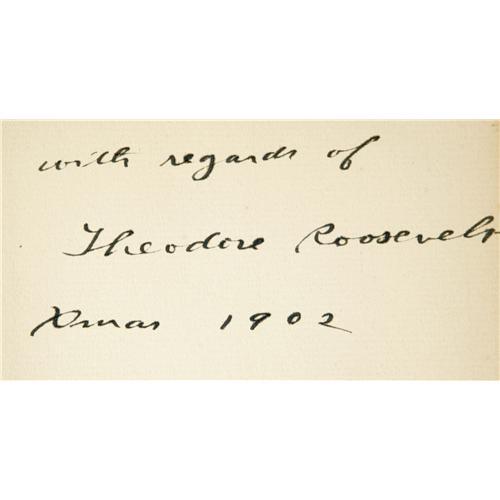 with regards of
Theodore Roosevelt
Xmas 1902